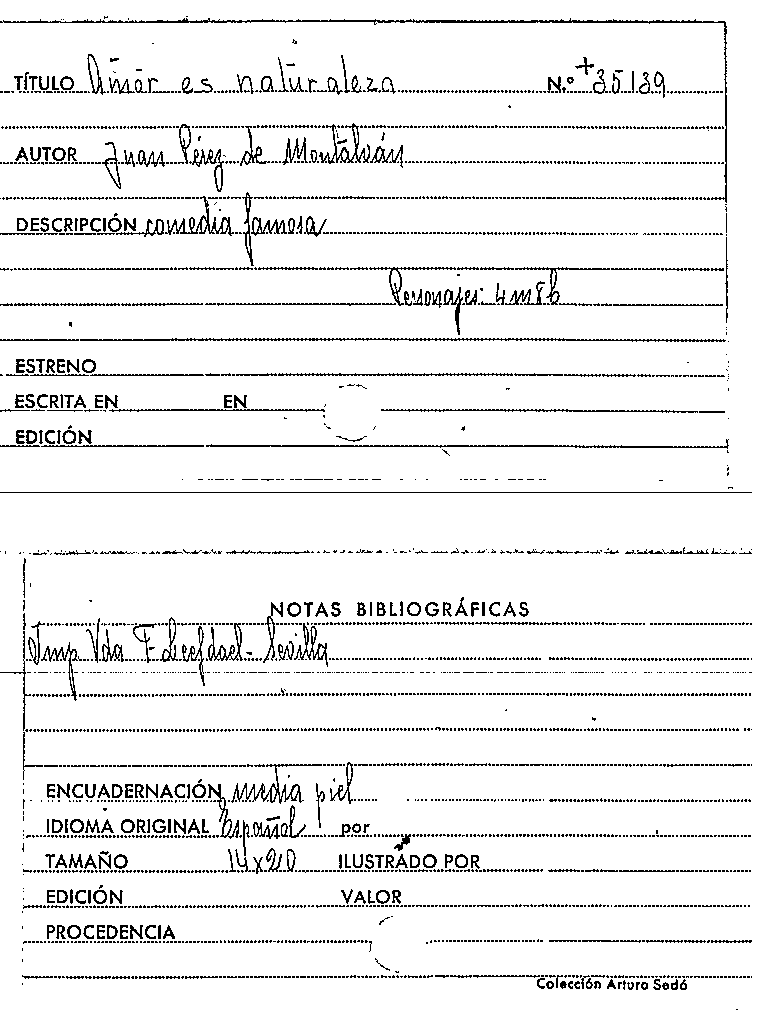 TÍTULO Amor es naturaleza N.º +35139
AUTOR Juan Pérez de Montalván
DESCRIPCIÓN comedia famosa
Personajes: 4m8h
ESTRENO
ESCRITA EN EN
EDICIÓN
NOTAS BIBLIOGRÁFICAS
Imp Vda F. Leefdael - Sevilla
ENCUADERNACIÓN media piel
IDIOMA ORIGINAL Español por
TAMAÑO 14x20 ILUSTRADO POR
EDICIÓN VALOR
PROCEDENCIA
Colección Arturo Sedó